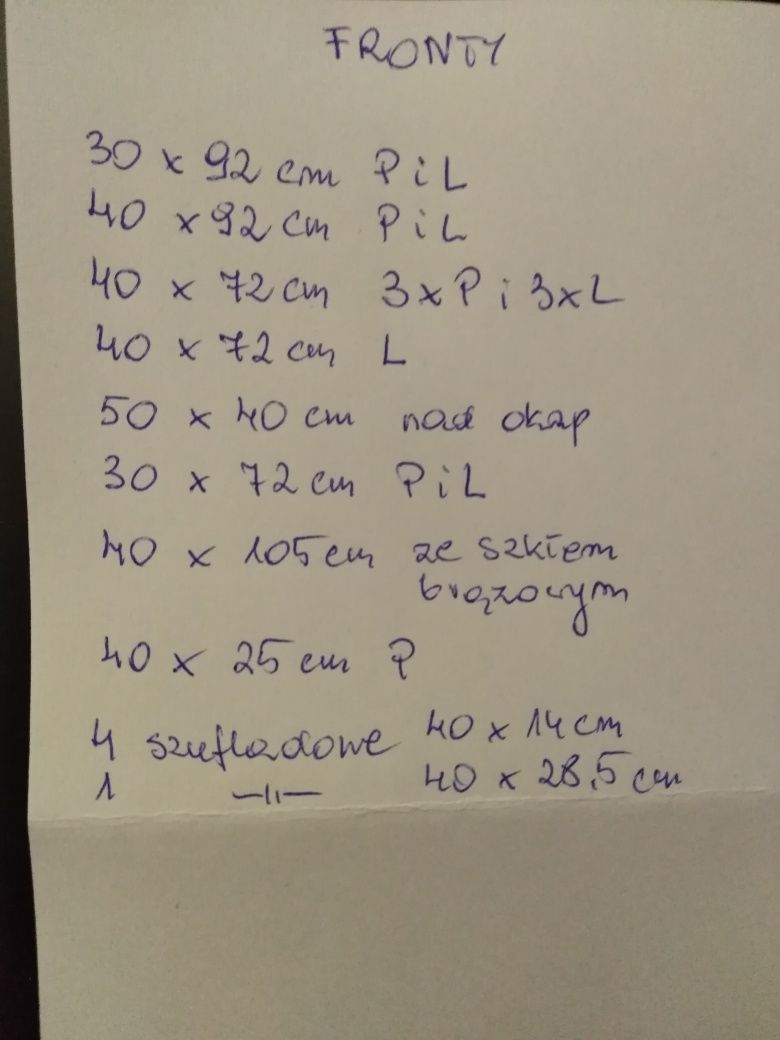 FRONTY
30 x 92 cm P i L
40 x 92 cm P i L
40 x 72 cm 3xP i 3xL
40 x 72 cm L
50 x 40 cm nad okap
30 x 72 cm P i L
40 x 105 cm ze szkłem
brązowym
40 x 25 cm P
4 szufladowe 40 x 14 cm
1 —||— 40 x 28,5 cm